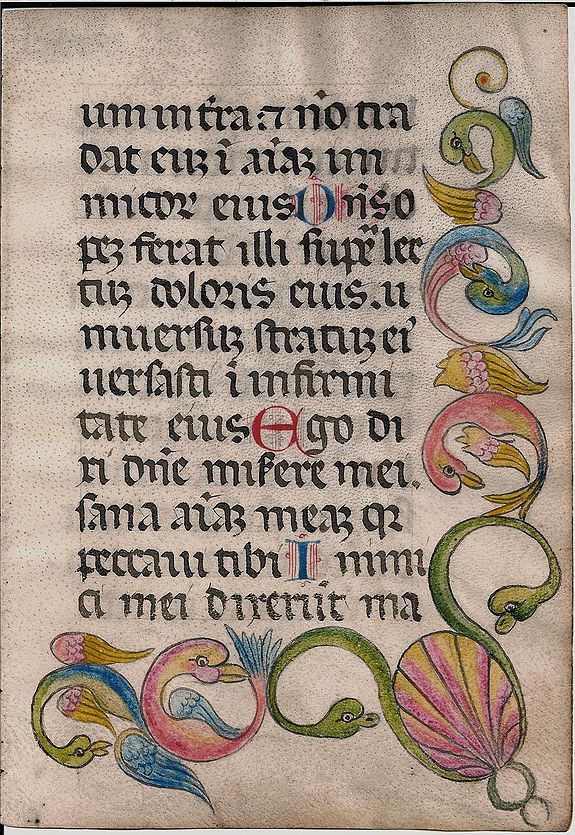 um in tr̄a ⁊ nō tra
dat euꝫ ī aīaꝫ ini
micoꝝ eius Dn̄s o
peꝫ ferat illi sup̄ lec
tuꝫ doloris eius. u
niuersuꝫ stratuꝫ ei᾽
uersasti ī infirmi
tate eius Ego di
xi dn̄e miserere mei.
sana aīaꝫ meaꝫ qꝛ
peccaui tibi I nimi
ci mei dixerūt ma